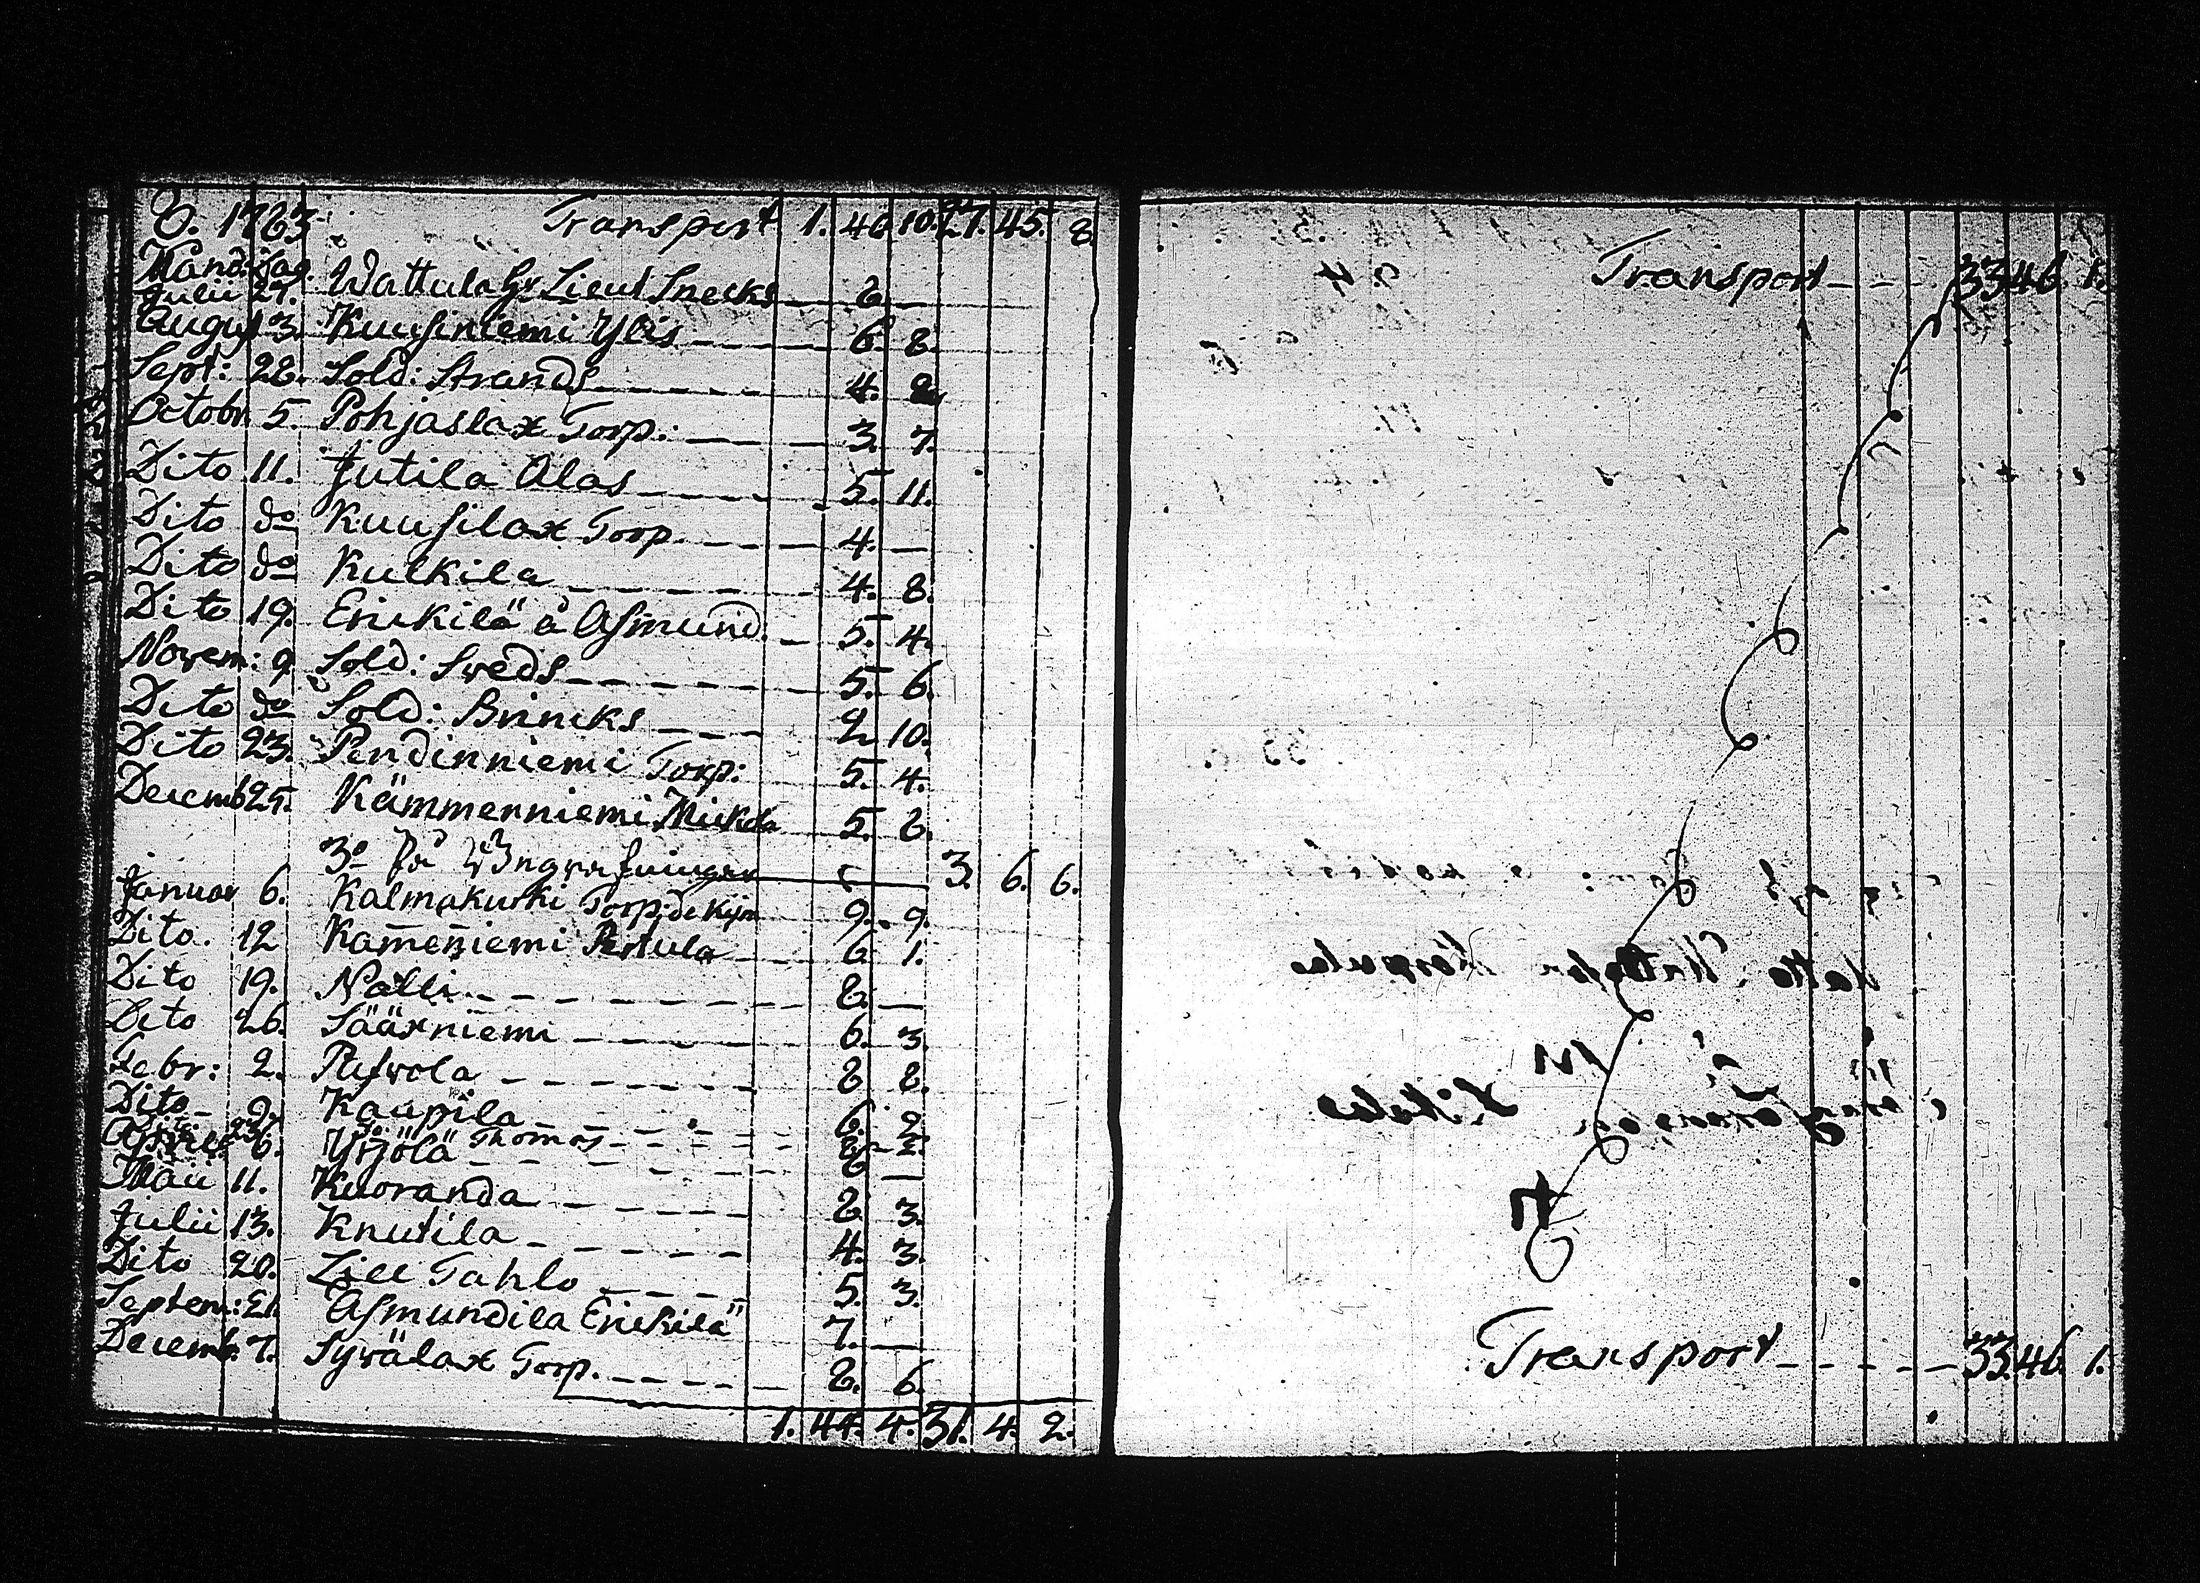 1763 Transport 1. 46 10. 27. 45. 8.
Månd: Dag.
Julii 27. Wattula Hr Lieut Snecks 8 —
August 3. Kuusiniemi Ylis 6. 8.
Sept: 28. Sold: Strands 4. 8.
Octobr. 5 Pohjaslax Torp: 3. 7.
Dito 11. Jutila Alas 5. 11.
Dito do Kuusilax Torp. 4. —
Dito do Kulkila 4. 8.
Dito 19. Erickilä å Asmund. 5. 4.
Novem: 9. Sold: Sweds 5. 6.
Dito do Sold: Brincks 2 10.
Dito 23. Pendinniemi Torp: 5. 4.
Decemb 25. Kämmenniemi Mickola 5. 8.
3. 6. 6.
Januar 6. Kalmakurki Torp: 9. 9.
Dito. 12 Kämenniemi Pertula 6 1.
Dito 19. Nalli 8. —
Dito 26. Sääxniemi 6. 3.
Febr: 2. 8 8.
Dito 9. Kaupila 6. 2
Thomas
April 6. Yrjölä 6 —
Maii 11. Kuoranda 8. 3.
Julii 13. Knutila 4. 3.
Dito 20. Lill Tahlo 5. 3.
Septem: 21. Asmundila Erickilä 7. —
Decemb. 7. Sywälax Torp. 8. 6.
1. 44. 4. 31. 4. 2.
Transport 33 46. 1.
Transport 33. 46. 1.